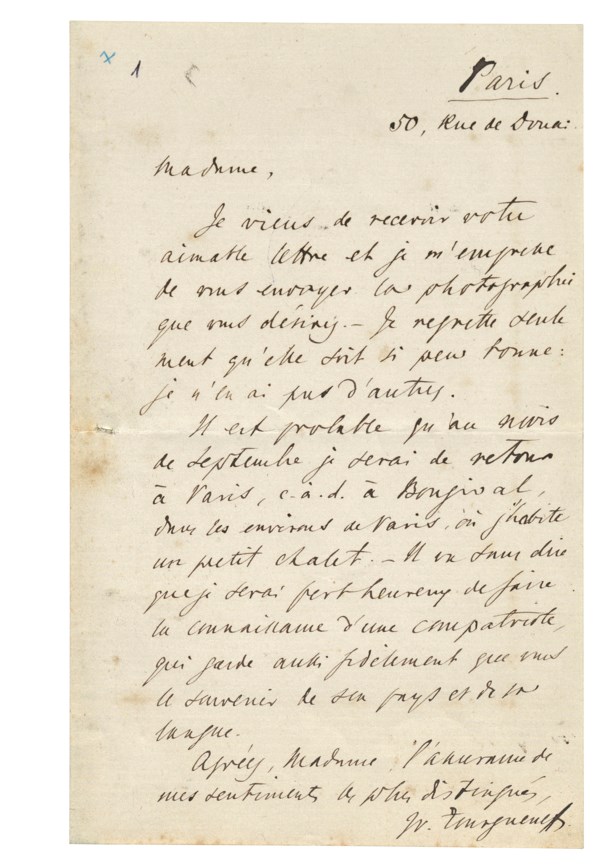 x 1
Paris.
50, Rue de Douai
Madame,
Je viens de recevoir votre
aimable lettre et je m'empresse
de vous envoyer la photographie
que vous désirez. – Je regrette seule
ment qu'elle soit si peu bonne:
je n'en ai pas d'autres.
Il est probable qu'au mois
de Septembre je serai de retour
à Paris, c.à.d. à Bougival,
dans les environs de Paris, où j'habite
un petit chalet. – Il va sans dire
que je serai fort heureux de faire
la connaissance d'une compatriote,
qui garde aussi fidèlement que vous
le souvenir de son pays et de sa
langue.
Agréez, Madame, l'assurance de
mes sentiments les plus distingués,
Iv. Tourgueneff.